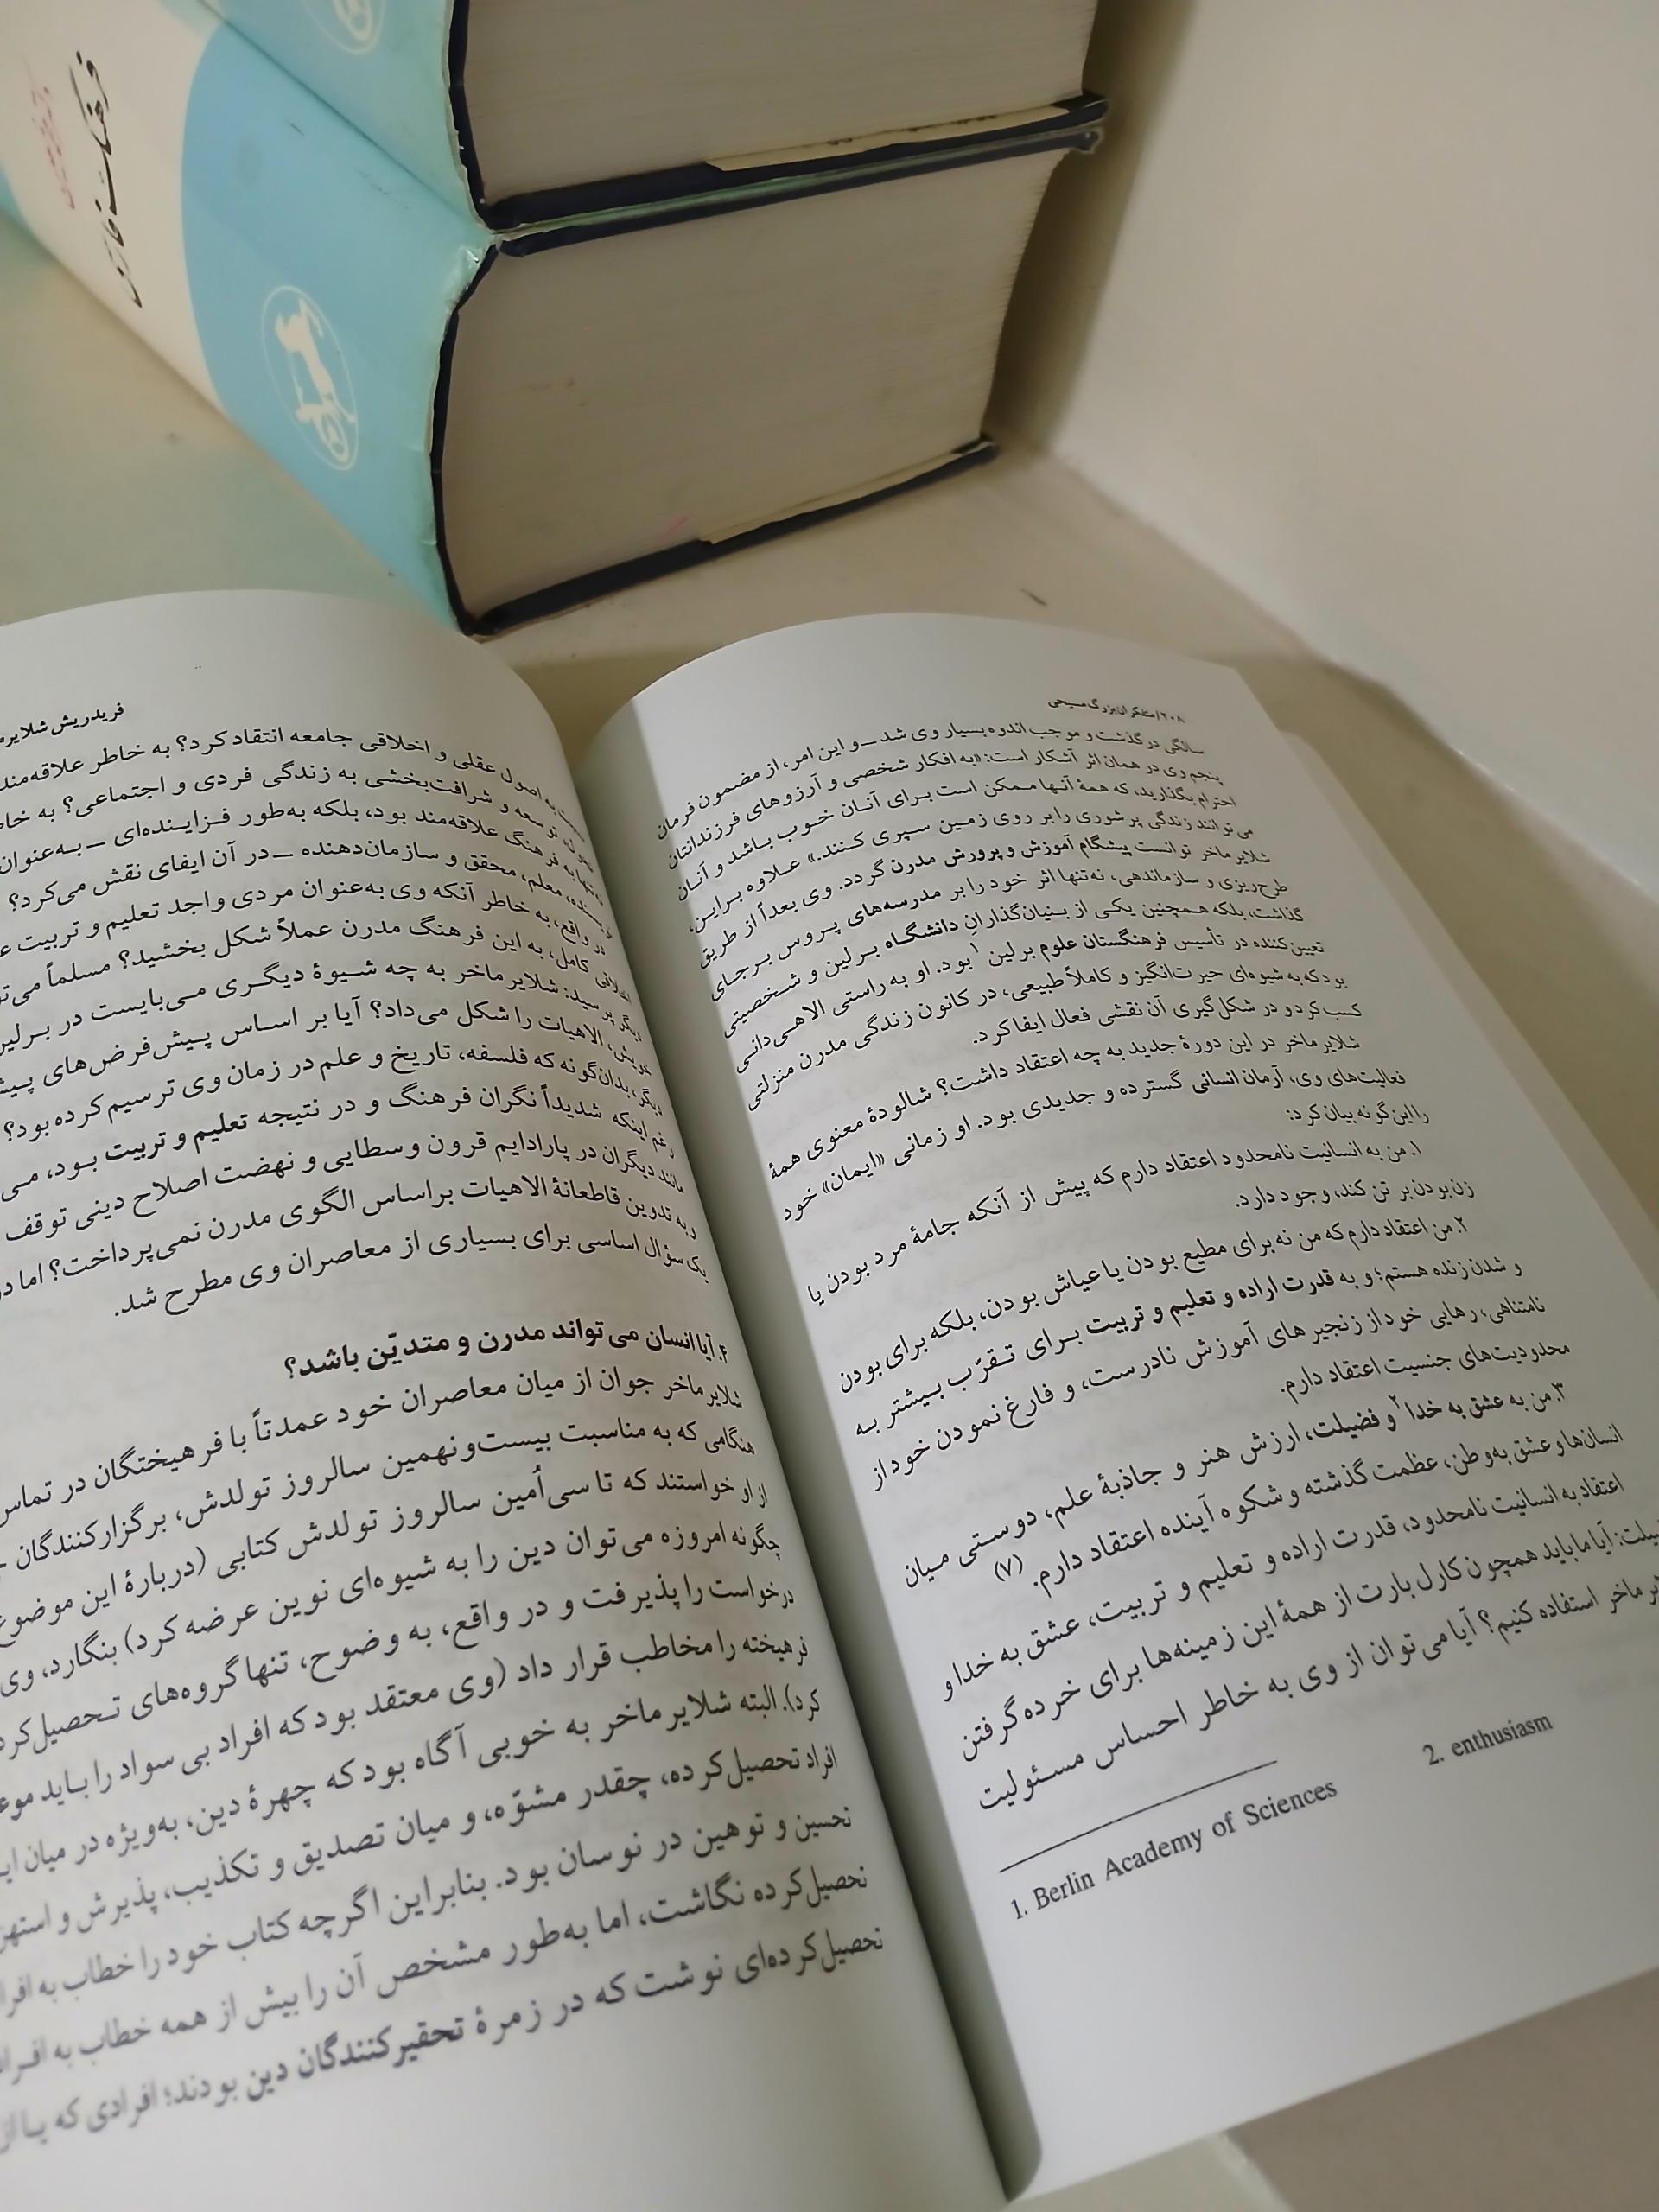 فرهنگ فارسی
۲۰۸/متفکران بزرگ مسیحی
سالگی درگذشت و موجب اندوه بسیار وی شد ــ و این امر، از مضمون فرمان
پنجم وی در همان اثر آشکار است: «به افکار شخصی و آرزوهای فرزندانتان
احترام بگذارید، که همهٔ آنها ممکن است برای آنان خوب باشد و آنان
می‌توانند زندگی پرشوری را بر روی زمین سپری کنند.» علاوه براین،
شلایرماخر توانست پیشگام آموزش و پرورش مدرن گردد. وی بعداً از طریق
طرح‌ریزی و سازماندهی، نه‌تنها اثر خود را بر مدرسه‌های پروس برجای
گذاشت، بلکه همچنین یکی از بنیان‌گذارانِ دانشگاه برلین و شخصیتی
تعیین‌کننده در تأسیس فرهنگستان علوم برلین۱ بود. او به راستی الاهی‌دانی
بود که به شیوه‌ای حیرت‌انگیز و کاملاً طبیعی، در کانون زندگی مدرن منزلتی
کسب کرد و در شکل‌گیری آن نقشی فعال ایفا کرد.
شلایرماخر در این دورهٔ جدید به چه اعتقاد داشت؟ شالودهٔ معنوی همهٔ
فعالیت‌های وی، آرمان انسانی گسترده و جدیدی بود. او زمانی «ایمان» خود
را این‌گونه بیان کرد:
۱. من به انسانیت نامحدود اعتقاد دارم که پیش از آنکه جامهٔ مرد بودن یا
زن بودن بر تن کند، وجود دارد.
۲. من اعتقاد دارم که من نه برای مطیع بودن یا عیاش بودن، بلکه برای بودن
و شدن زنده هستم؛ و به قدرت اراده و تعلیم و تربیت برای تقرّب بیشتر به
نامتناهی، رهایی خود از زنجیرهای آموزش نادرست، و فارغ نمودن خود از
محدودیت‌های جنسیت اعتقاد دارم.
۳. من به عشق به خدا۲ و فضیلت، ارزش هنر و جاذبهٔ علم، دوستی میان
انسان‌ها و عشق به وطن، عظمت گذشته و شکوه آینده اعتقاد دارم. (۷)
اعتقاد به انسانیت نامحدود، قدرت اراده و تعلیم و تربیت، عشق به خدا و
آیا ما باید همچون کارل بارت از همهٔ این زمینه‌ها برای خرده گرفتن
استفاده کنیم؟ آیا می‌توان از وی به خاطر احساس مسئولیت
1. Berlin Academy of Sciences
2. enthusiasm
فریدریش
به اصول عقلی و اخلاقی جامعه انتقاد کرد؟ به خاطر علاقه‌مند
توسعه و شرافت‌بخشی به زندگی فردی و اجتماعی؟ به
به فرهنگ علاقه‌مند بود، بلکه به‌طور فزاینده‌ای ــ به‌عنوان
معلم، محقق و سازمان‌دهنده ــ در آن ایفای نقش می‌کرد؟
در واقع، به خاطر آنکه وی به‌عنوان مردی واجد تعلیم و تربیت
کامل، به این فرهنگ مدرن عملاً شکل بخشید؟ مسلماً
دیگر پرسید: شلایرماخر به چه شیوهٔ دیگری می‌بایست در
خویش، الاهیات را شکل می‌داد؟ آیا بر اساس پیش‌فرض‌های
دیگر، بدان‌گونه که فلسفه، تاریخ و علم در زمان وی ترسیم کرده بود؟
رغم اینکه شدیداً نگران فرهنگ و در نتیجه تعلیم و تربیت بود،
مانند دیگران در پارادایم قرون وسطایی و نهضت اصلاح دینی توقف
و به تدوین قاطعانهٔ الاهیات براساس الگوی مدرن نمی‌پرداخت؟ اما
یک سؤال اساسی برای بسیاری از معاصران وی مطرح شد.
۴. آیا انسان می‌تواند مدرن و متدیّن باشد؟
شلایرماخر جوان از میان معاصران خود عمدتاً با فرهیختگان در تماس
هنگامی که به مناسبت بیست‌ونهمین سالروز تولدش، برگزارکنندگان
از او خواستند که تا سی‌اُمین سالروز تولدش کتابی (دربارهٔ این موضوع
چگونه امروزه می‌توان دین را به شیوه‌ای نوین عرضه کرد) بنگارد، وی
درخواست را پذیرفت و در واقع، به وضوح، تنها گروه‌های
فرهیخته را مخاطب قرار داد (وی معتقد بود که افراد بی سواد را باید
کرد). البته شلایرماخر به خوبی آگاه بود که چهرهٔ دین، به‌ویژه در میان
افراد تحصیل‌کرده، چقدر مشوّه، و میان تصدیق و تکذیب، پذیرش و
تحسین و توهین در نوسان بود. بنابراین اگرچه کتاب خود را خطاب به
تحصیل‌کرده نگاشت، اما به‌طور مشخص آن را بیش از همه خطاب به
تحصیل‌کرده‌ای نوشت که در زمرهٔ تحقیرکنندگان دین بودند؛ افرادی که یا